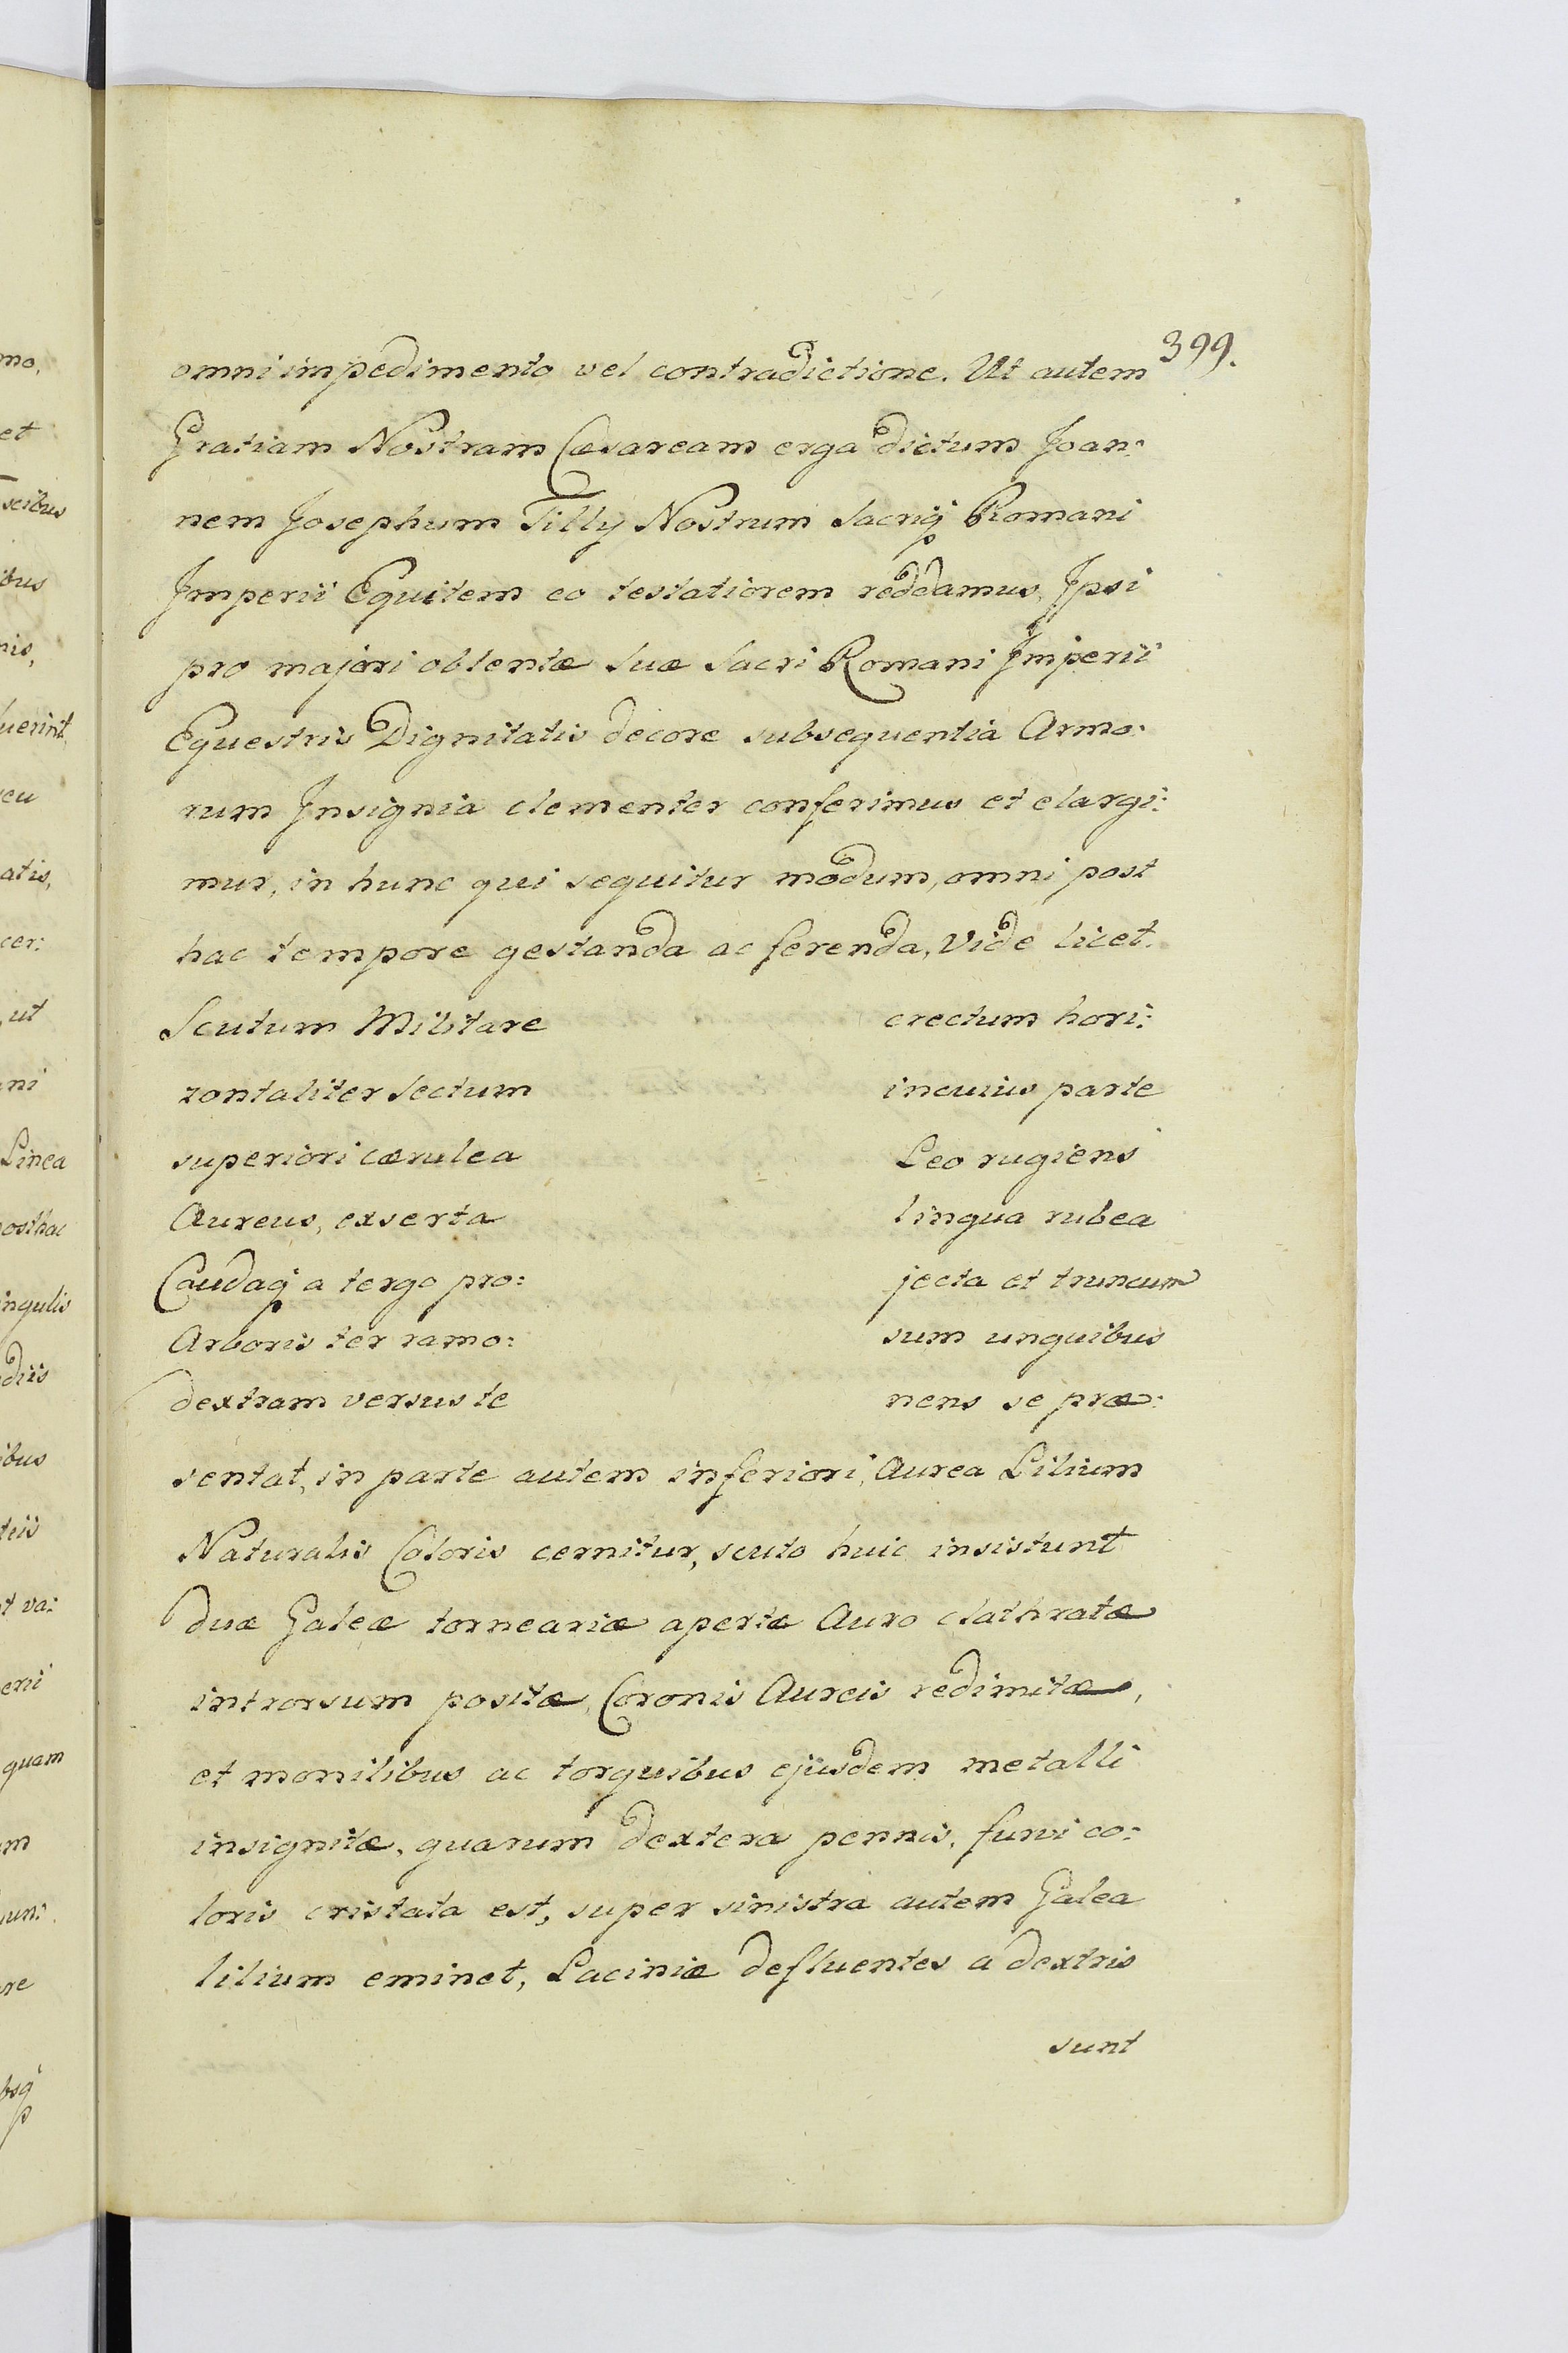 399.
omni impedimento vel contradictione. Ut autem
Gratiam Nostram Cæsaream erga dictum Joan:
nem Josephum Tilly Nostrum Sacriq Romani
Imperii Equitem eo testatiorem reddamus, Ipsi
pro majori obtentæ suæ Sacri Romani Imperii
Equestris Dignitatis decore subsequentia Armo:
rum Insignia clementer conferimus et elargi:
mur, in hunc qui sequitur modum, omni post
hac tempore gestanda ac ferenda, Vide licet.
Scutum Militare erectum hori:
zontaliter Sectum incuius parte
superiori cærulea Leo rugiens
Aureus, exserta lingua rubea
Caudaq a tergo pro: jecta et truncum
Arboris ter ramo: sum unguibus
dextram versus te nens se præ:
sentat, in parte autem inferiori, Aurea Lilium
Naturalis Coloris cernitur, scuto huic insistunt
duæ Galeæ torneariæ apertæ Auro clathratæ
introrsum positæ, Coronis Aureis redimitæ,
et monilibus ac torquibus ejusdem metalli
insignitæ, quarum dextera pennis, furvi co:
loris cristata est, super sinistra autem Galea
lilium eminet, Laciniæ defluentes a dextris
sunt
mo,
et
scibus
ibus
nis,
fuerint
seu
atis,
cer:
ut
ni
Linea
posthac
ingulis
diis
ibus
teii
t va:
erii
quam
m
re
bsq